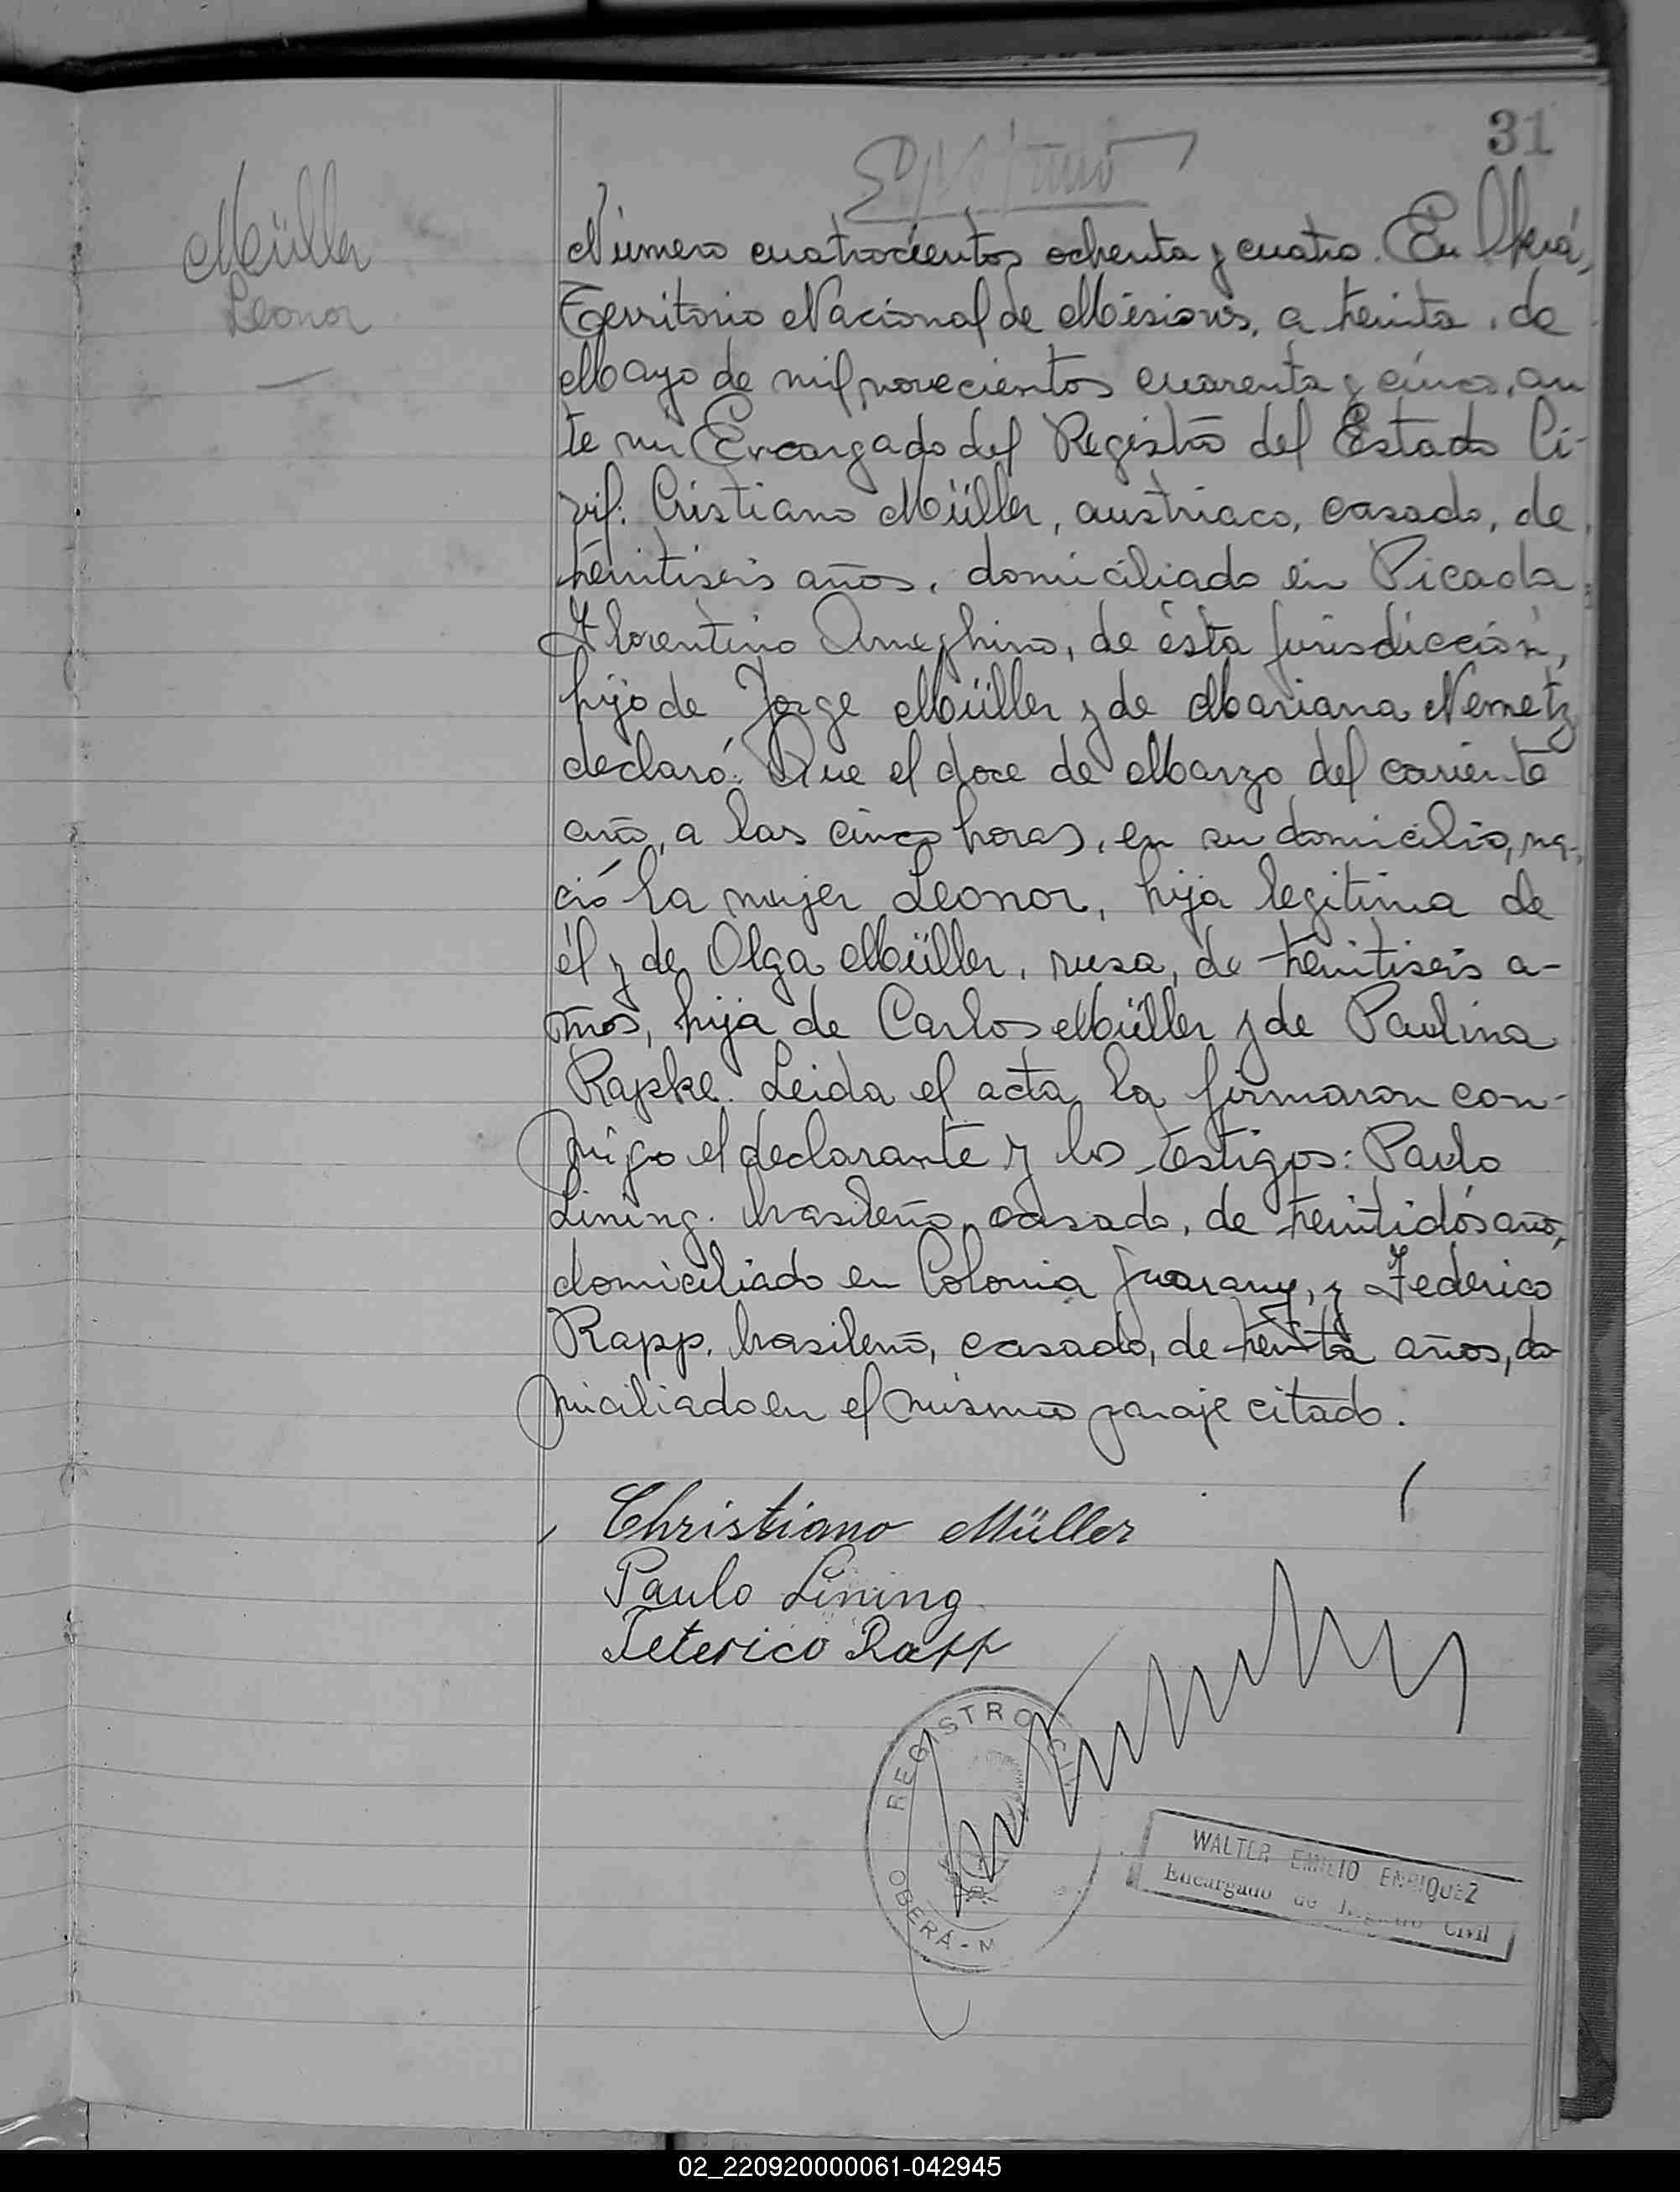 31
Müller
Leonor
Número cuatrocientos ochenta y cuatro. En Oberá,
Territorio Nacional de Misiones, a treinta de
Mayo de mil novecientos cuarenta y cinco, an
te mi Encargado del Registro del Estado Ci-
vil: Cristiano Müller, austriaco, casado, de
treintiseis años, domiciliado en Picada
Florentino Ameghino, de ésta jurisdicción,
hijo de Jorge Müller y de Mariana Nemetz
declaró: Que el doce de Marzo del corriente
año, a las cinco horas, en su domicilio, na-
ció la mujer Leonor, hija legitima de
él y de Olga Müller, rusa, de treintiseis a-
ños, hija de Carlos Müller y de Paulina
Rapke. Leida el acta la firmaron con-
migo el declarante y los testigos: Paulo
Lining, brasileño, casado, de treintidós años,
domiciliado en Colonia Guarany, y Federico
Rapp, brasileño, casado, de treinta años, do
miciliado en el mismo paraje citado.
Christiano Müller
Paulo Lining
Feterico Rapp
REGISTRO CIV
OBERÁ - M
WALTER EMILIO ENRIQUEZ
Encargado de Registro Civil
02_220920000061-042945